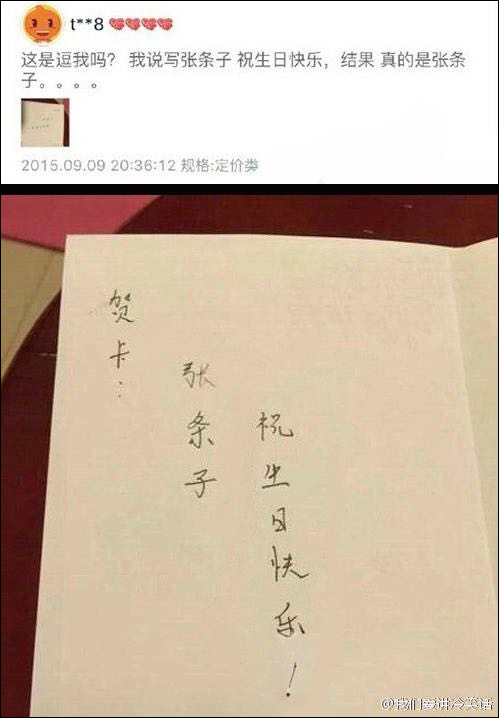 t**8
这是逗我吗? 我说写张条子 祝生日快乐，结果 真的是张条
子。。。。
2015.09.09 20:36:12 规格:定价类
贺卡：
张条子
祝生日快乐！
@我们爱讲冷笑话